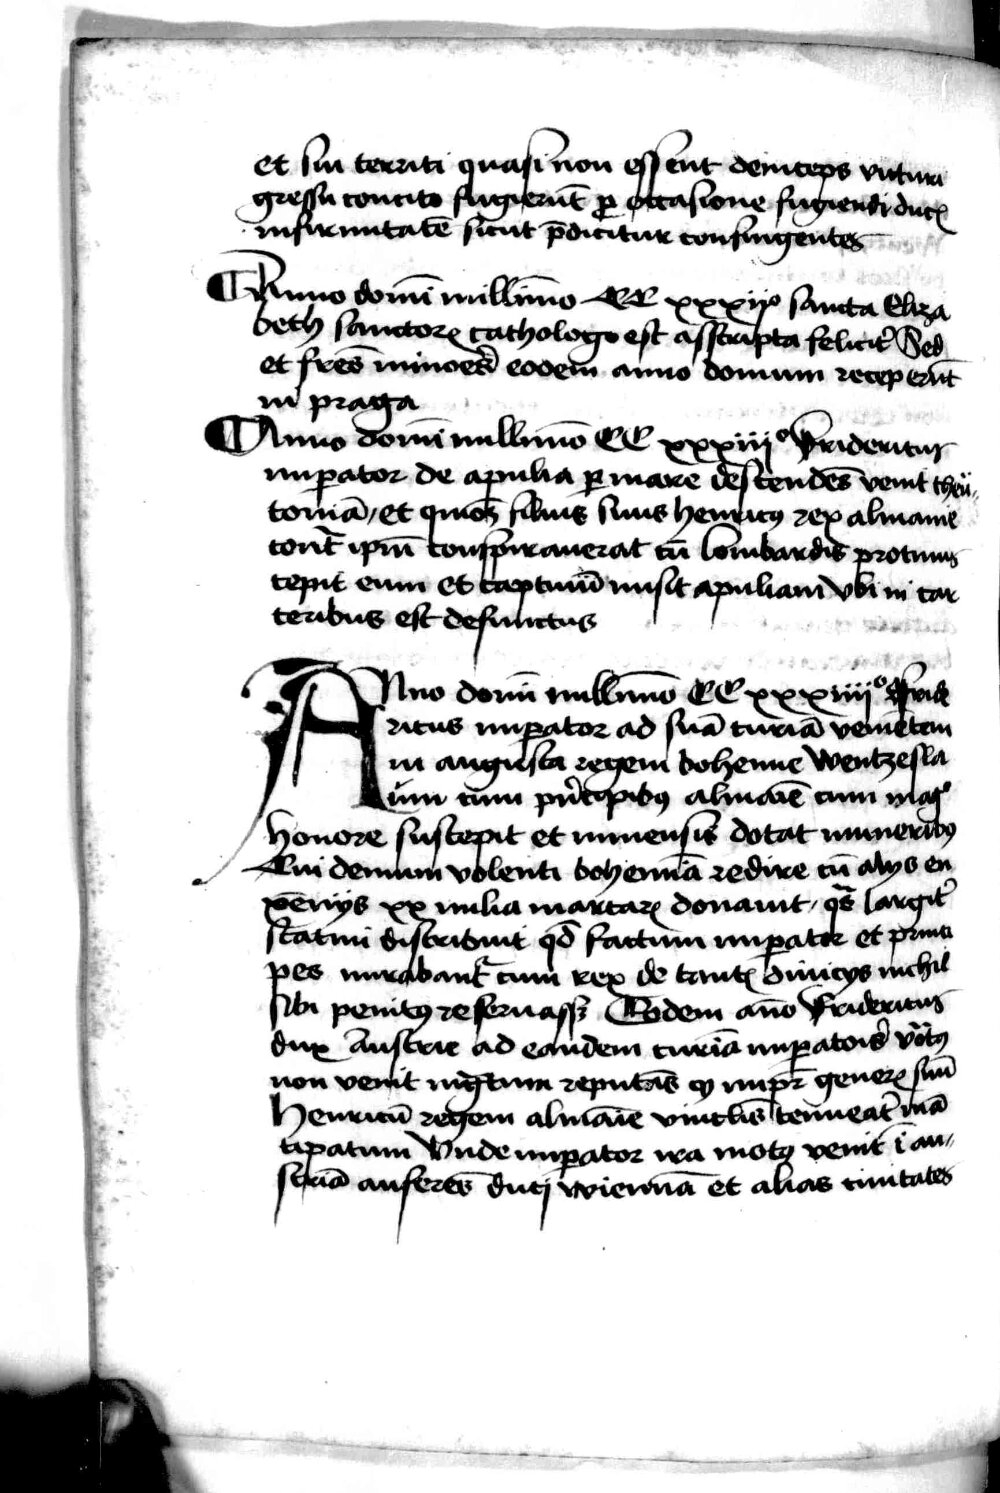 et sui territi quasi non essent deinceps victuri
gressu concito fugierūt ꝑ occasione fugiendi ducꝭ
infirmitatē sicut p̄dicitur confingentes
Anno domī millīmo CC xxxijº sancta Eliza
beth sanctoꝝ cathologo est asscripta feliciť Sed
et fr̄es minores eodem anno domum receperūt
in praga
Anno domī millīmo CC xxxiiiº Fridericus
imꝑator de apulia ꝑ mare descendēs venit theu„
toniā, et quia filius suus henricꝰ rex almanie
cont̄ ipm̄ conspirauerat cū lombardis protinus
cepit eum et captiuū misit apuliam vbi in car
ceribus est defunctus
Anno domī millīmo CC xxxiiiiº Fride
ricus imꝑator ad suā curiā veniētem
in augusta regem bohemie Wentzesla
um cum pͥncipibꝰ almaīe cum magº
honore suscepit et immensis dotat muneribꝰ
Cui demum volenti bohemiā redire cū alijs ex
pēnsijs xx milia marcaꝝ donauit, qͣs largiť
statim distribuit qd̄ factum imꝑator et princi
pes mirabant᷑ cum rex de tantꝭ diuicijs nichil
sibi penitꝰ reseruassꝫ Eodem āno Fridericus
dux Austrie ad eandem curiā imꝑatoris vocatꝰ
non venit indignum reputās ꝙ imꝑ̄ generꝝ suū
Henricū regem almaīe vinclis teneat᷑ mā
cipatum Vnde imꝑator ira motꝰ venit ī au„
striā auferēs duci wiennā et alias ciuitates